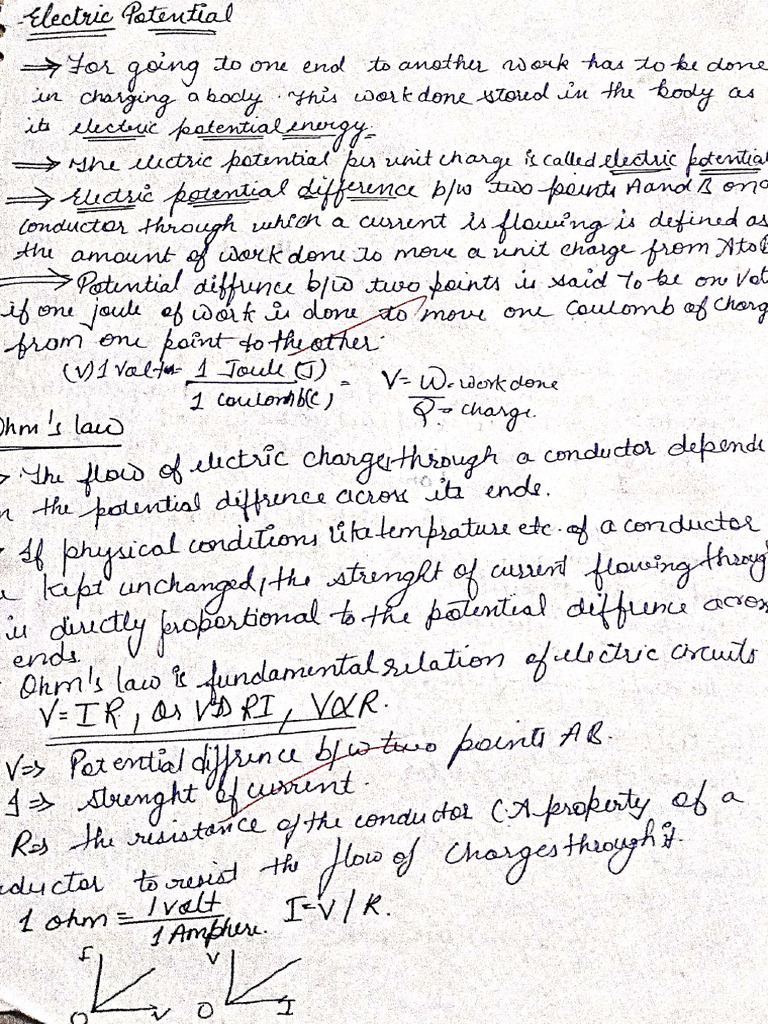 Electric Potential
⇒ For going to one end to another work has to be done
in charging a body. This work done stored in the body as
its electric potential energy.
⇒ The electric potential per unit charge is called electric potential
⇒ Electric potential difference b/w two points A and B on a
conductor through which a current is flowing is defined as
the amount of work done to move a unit charge from A to B
⇒ Potential diffrence b/w two points is said to be on Volt
if one joule of work is done to move one Coulomb of Charg
from one point to the other.
(V) 1 Volt = 1 Joule (J) / 1 coulomb (C) = V = W → work done / Q → charge.
Ohm's law
→ The flow of electric charges through a conductor depends
n the potential diffrence across its ends.
→ If physical conditions like temprature etc. of a conductor
e kept unchanged, the strenght of current flowing throug
is directly proportional to the potential diffrence across
ends.
Ohm's law is fundamental relation of electric circuits
V = IR, or V RI, V ∝ R.
V ⇒ Potential diffrence b/w two points AB.
I ⇒ strenght of current.
R ⇒ the resistance of the conductor (A property of a
ductor to resist the flow of charges through it.
1 ohm = 1 volt / 1 Amphere. I = V / R.
I V
O V O I